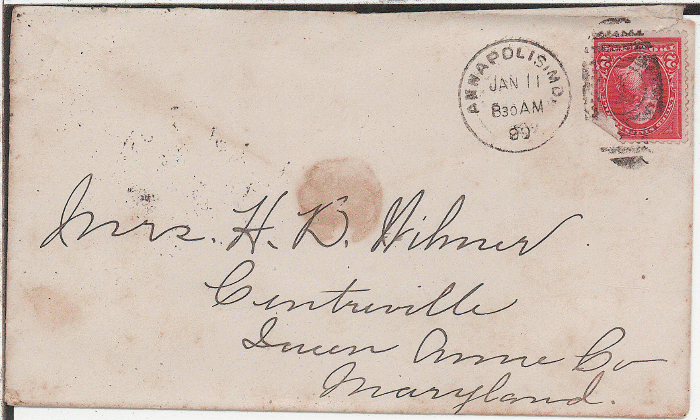 ANNAPOLIS, MD.
JAN 11
830 AM
99
2 2
Mrs. H. B. Wilmer
Centreville
Queen Anne Co
Maryland.